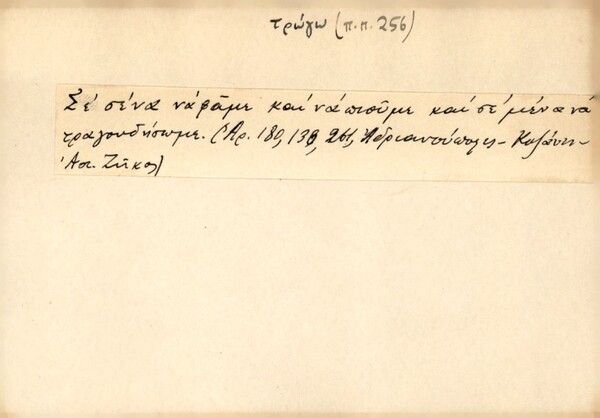 τρώγω (π.π. 256)
Σέ σένα νά φᾶμε καί νά πιοῦμε καί σέ μένα νά
τραγουδήσωμε. (Ἀρ. 180, 138, 261, Ἀδριανούπολις - Κοζάνη -
Ἀσ. Ζῆκος)